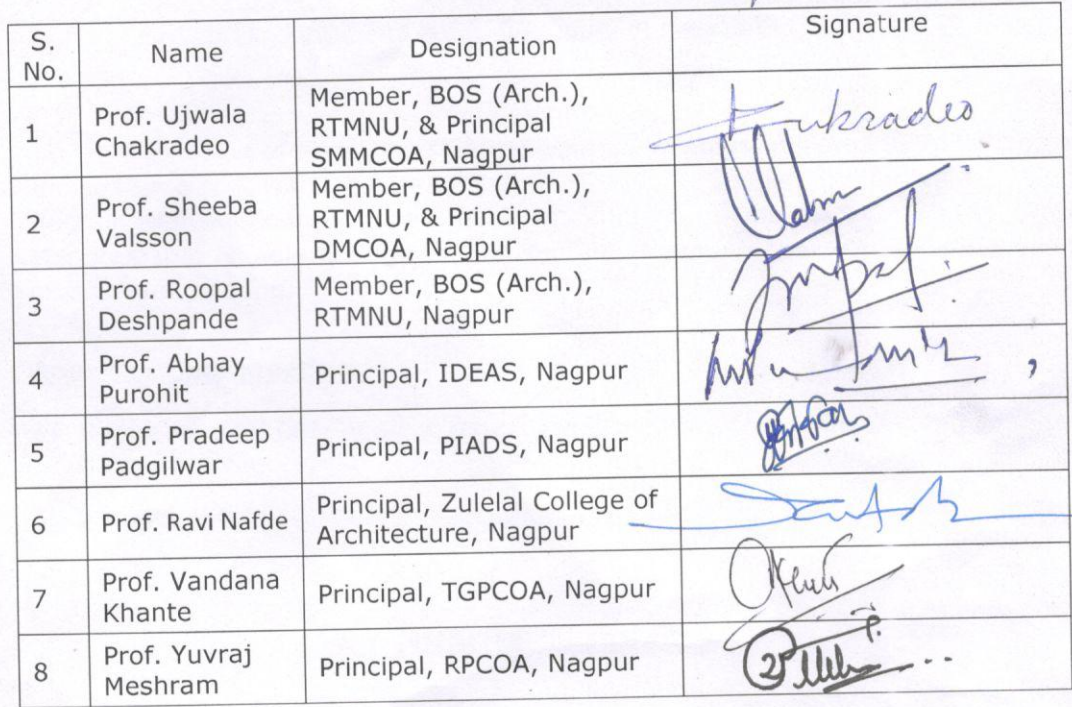 S. No. Name Designation Signature
1 Prof. Ujwala Chakradeo Member, BOS (Arch.), RTMNU, & Principal SMMCOA, Nagpur
2 Prof. Sheeba Valsson Member, BOS (Arch.), RTMNU, & Principal DMCOA, Nagpur
3 Prof. Roopal Deshpande Member, BOS (Arch.), RTMNU, Nagpur
4 Prof. Abhay Purohit Principal, IDEAS, Nagpur
5 Prof. Pradeep Padgilwar Principal, PIADS, Nagpur
6 Prof. Ravi Nafde Principal, Zulelal College of Architecture, Nagpur
7 Prof. Vandana Khante Principal, TGPCOA, Nagpur
8 Prof. Yuvraj Meshram Principal, RPCOA, Nagpur